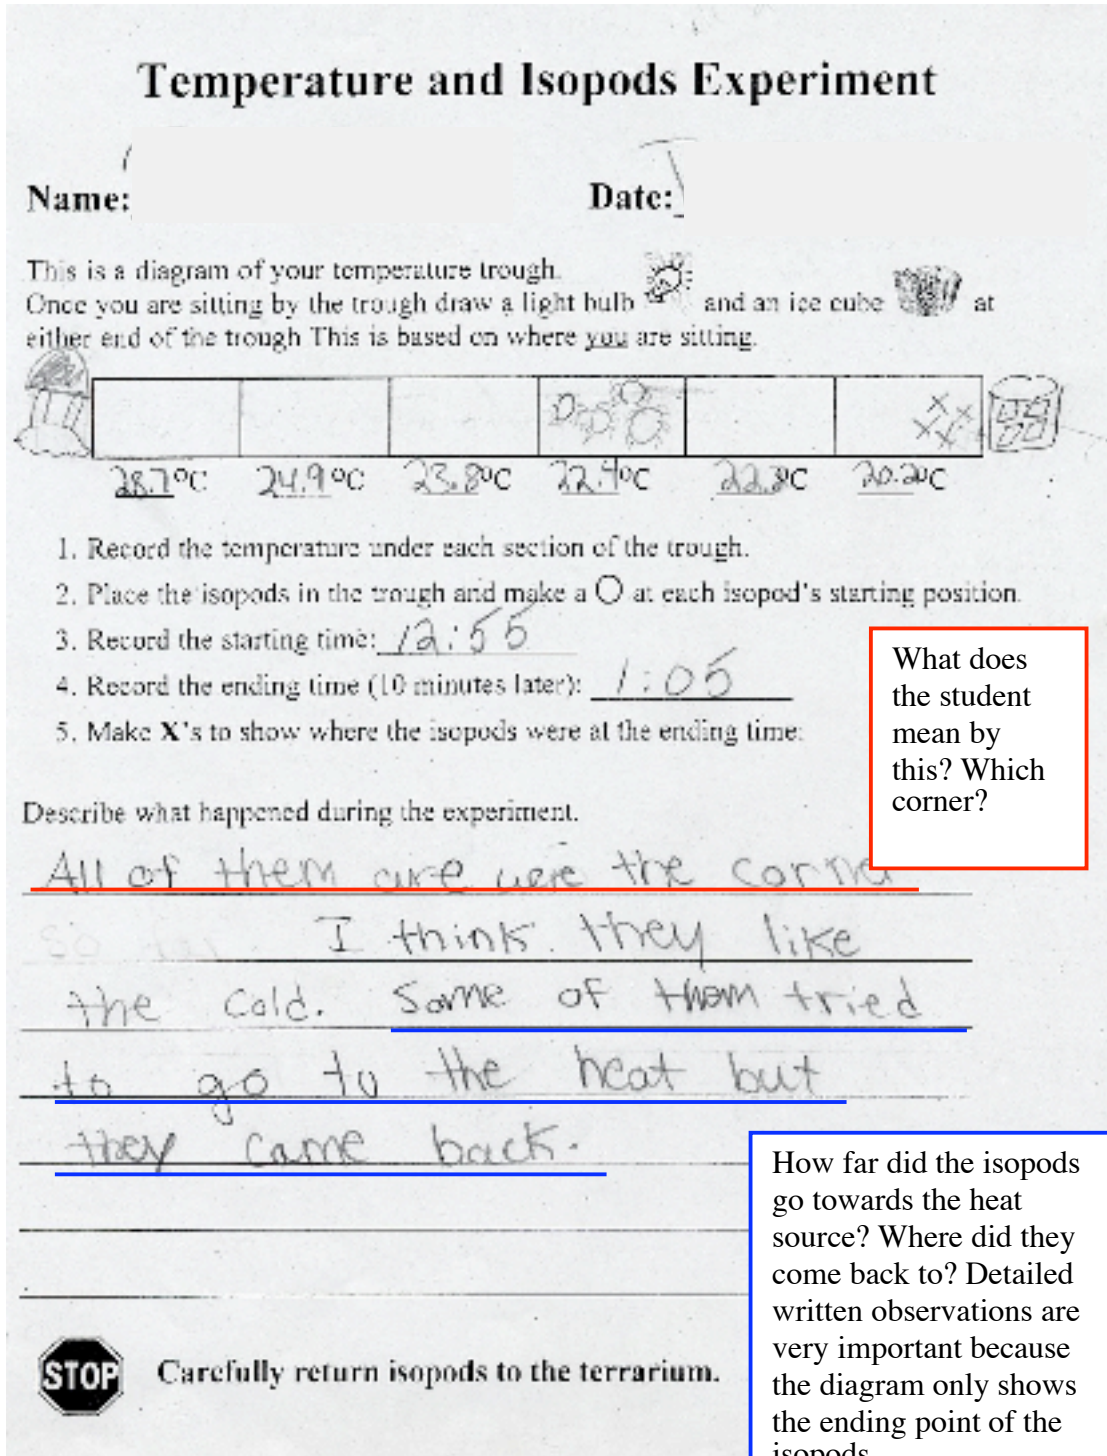 Temperature and Isopods Experiment
Name:
Date:
This is a diagram of your temperature trough.
Once you are sitting by the trough draw a light bulb and an ice cube at
either end of the trough This is based on where you are sitting.
28.7°C 24.9°C 23.8°C 22.4°C 22.3C 20.2°C
1. Record the temperature under each section of the trough.
2. Place the isopods in the trough and make a O at each isopod's starting position.
3. Record the starting time: 12:55
4. Record the ending time (10 minutes later): 1:05
5. Make X's to show where the isopods were at the ending time:
What does
the student
mean by
this? Which
corner?
Describe what happened during the experiment.
All of them are were the corner
so far I think they like
the cold. Some of them tried
to go to the heat but
they came back.
How far did the isopods
go towards the heat
source? Where did they
come back to? Detailed
written observations are
very important because
the diagram only shows
the ending point of the
isopods
STOP
Carefully return isopods to the terrarium.